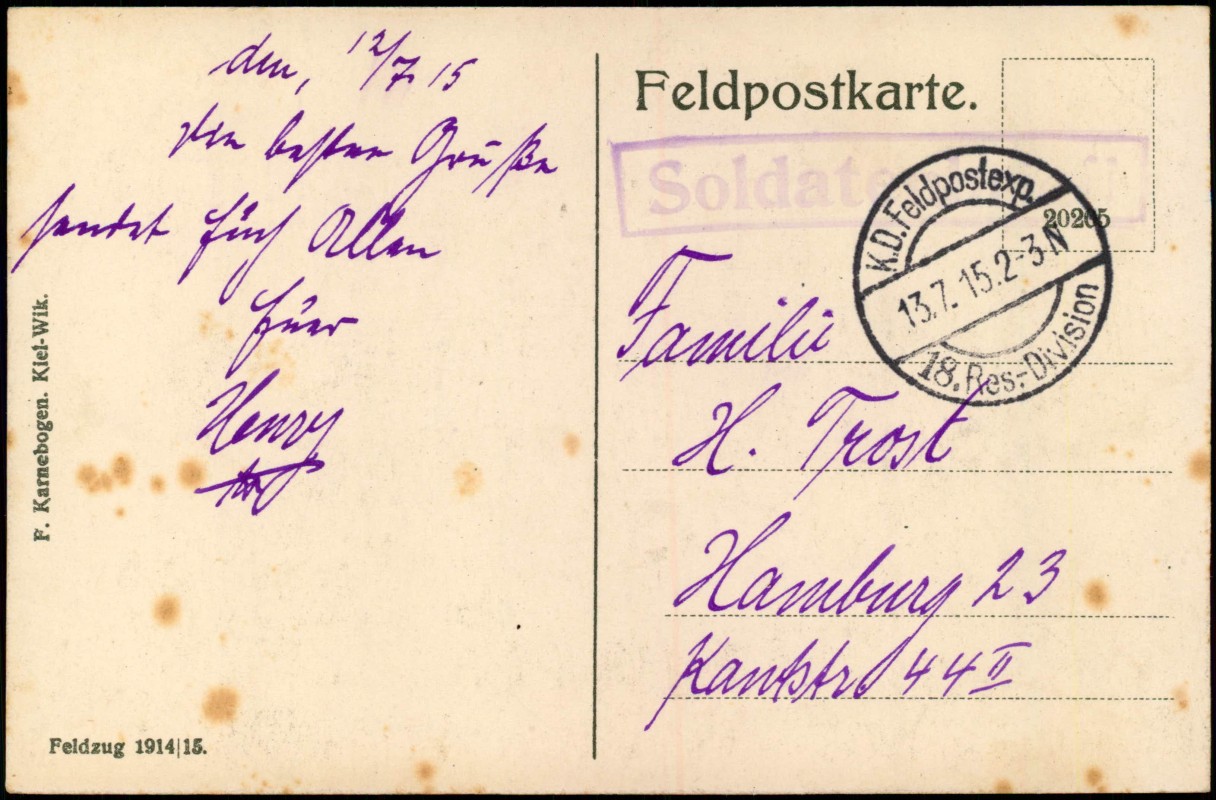 den, 12/7 15
die besten Grüße
sendet Euch Allen
Euer
Henry
F. Karnebogen. Kiel-Wik.
Feldzug 1914|15.
Feldpostkarte.
K.D. Feldpostexp.
13.7.15.2-3 N
18. Res.-Division
20205
Familie
H. Trost
Hamburg 23
Kantstr 44 II